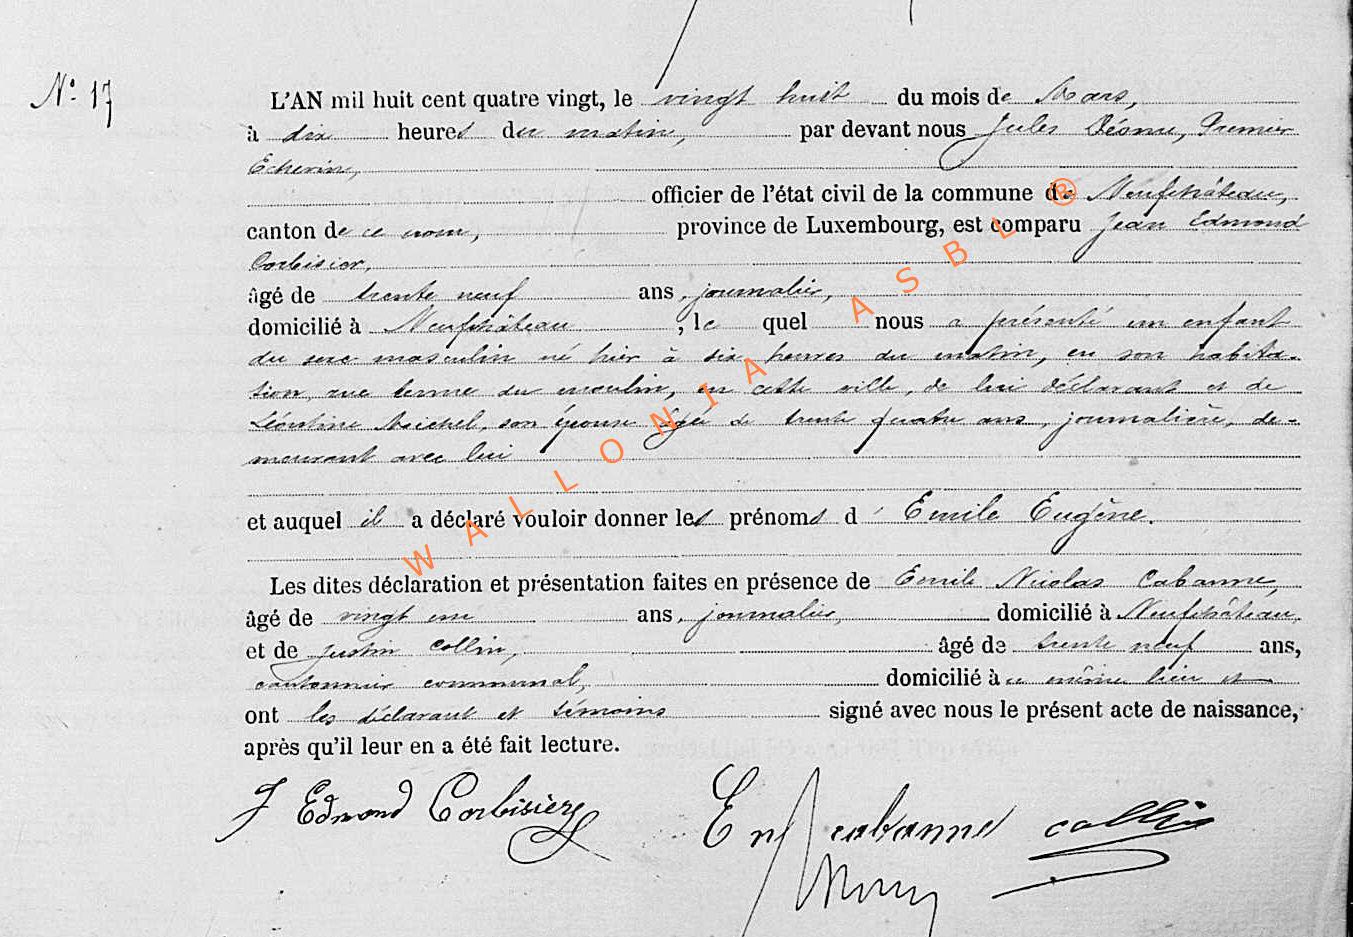 N° 17
L'AN mil huit cent quatre vingt, le vingt huit du mois de Mars,
à dix heures du matin, par devant nous Jules Désome, Premier
Echevin,
officier de l'état civil de la commune de Neufchâteau,
canton de ce nom, province de Luxembourg, est comparu Jean Edmond
Corbisier,
âgé de trente neuf ans, journalier,
domicilié à Neufchâteau, le quel nous a présenté un enfant
du sexe masculin né hier à six heures du matin, en son habita-
tion rue terme du moulin, en cette ville, de lui déclarant et de
Léontine Michel, son épouse âgée de trente quatre ans, journalière, de-
meurant avec lui
et auquel il a déclaré vouloir donner les prénoms d' Emile Eugène.
Les dites déclaration et présentation faites en présence de Emile Nicolas Cabanne,
âgé de vingt un ans, journalier, domicilié à Neufchâteau,
et de Justin Collin, âgé de trente neuf ans,
cantonnier communal, domicilié à ce même lieu et
ont les déclarant et témoins signé avec nous le présent acte de naissance,
après qu'il leur en a été fait lecture.
J Edmond Corbisier
En cabanne collin
WALLONIA ASBL ®